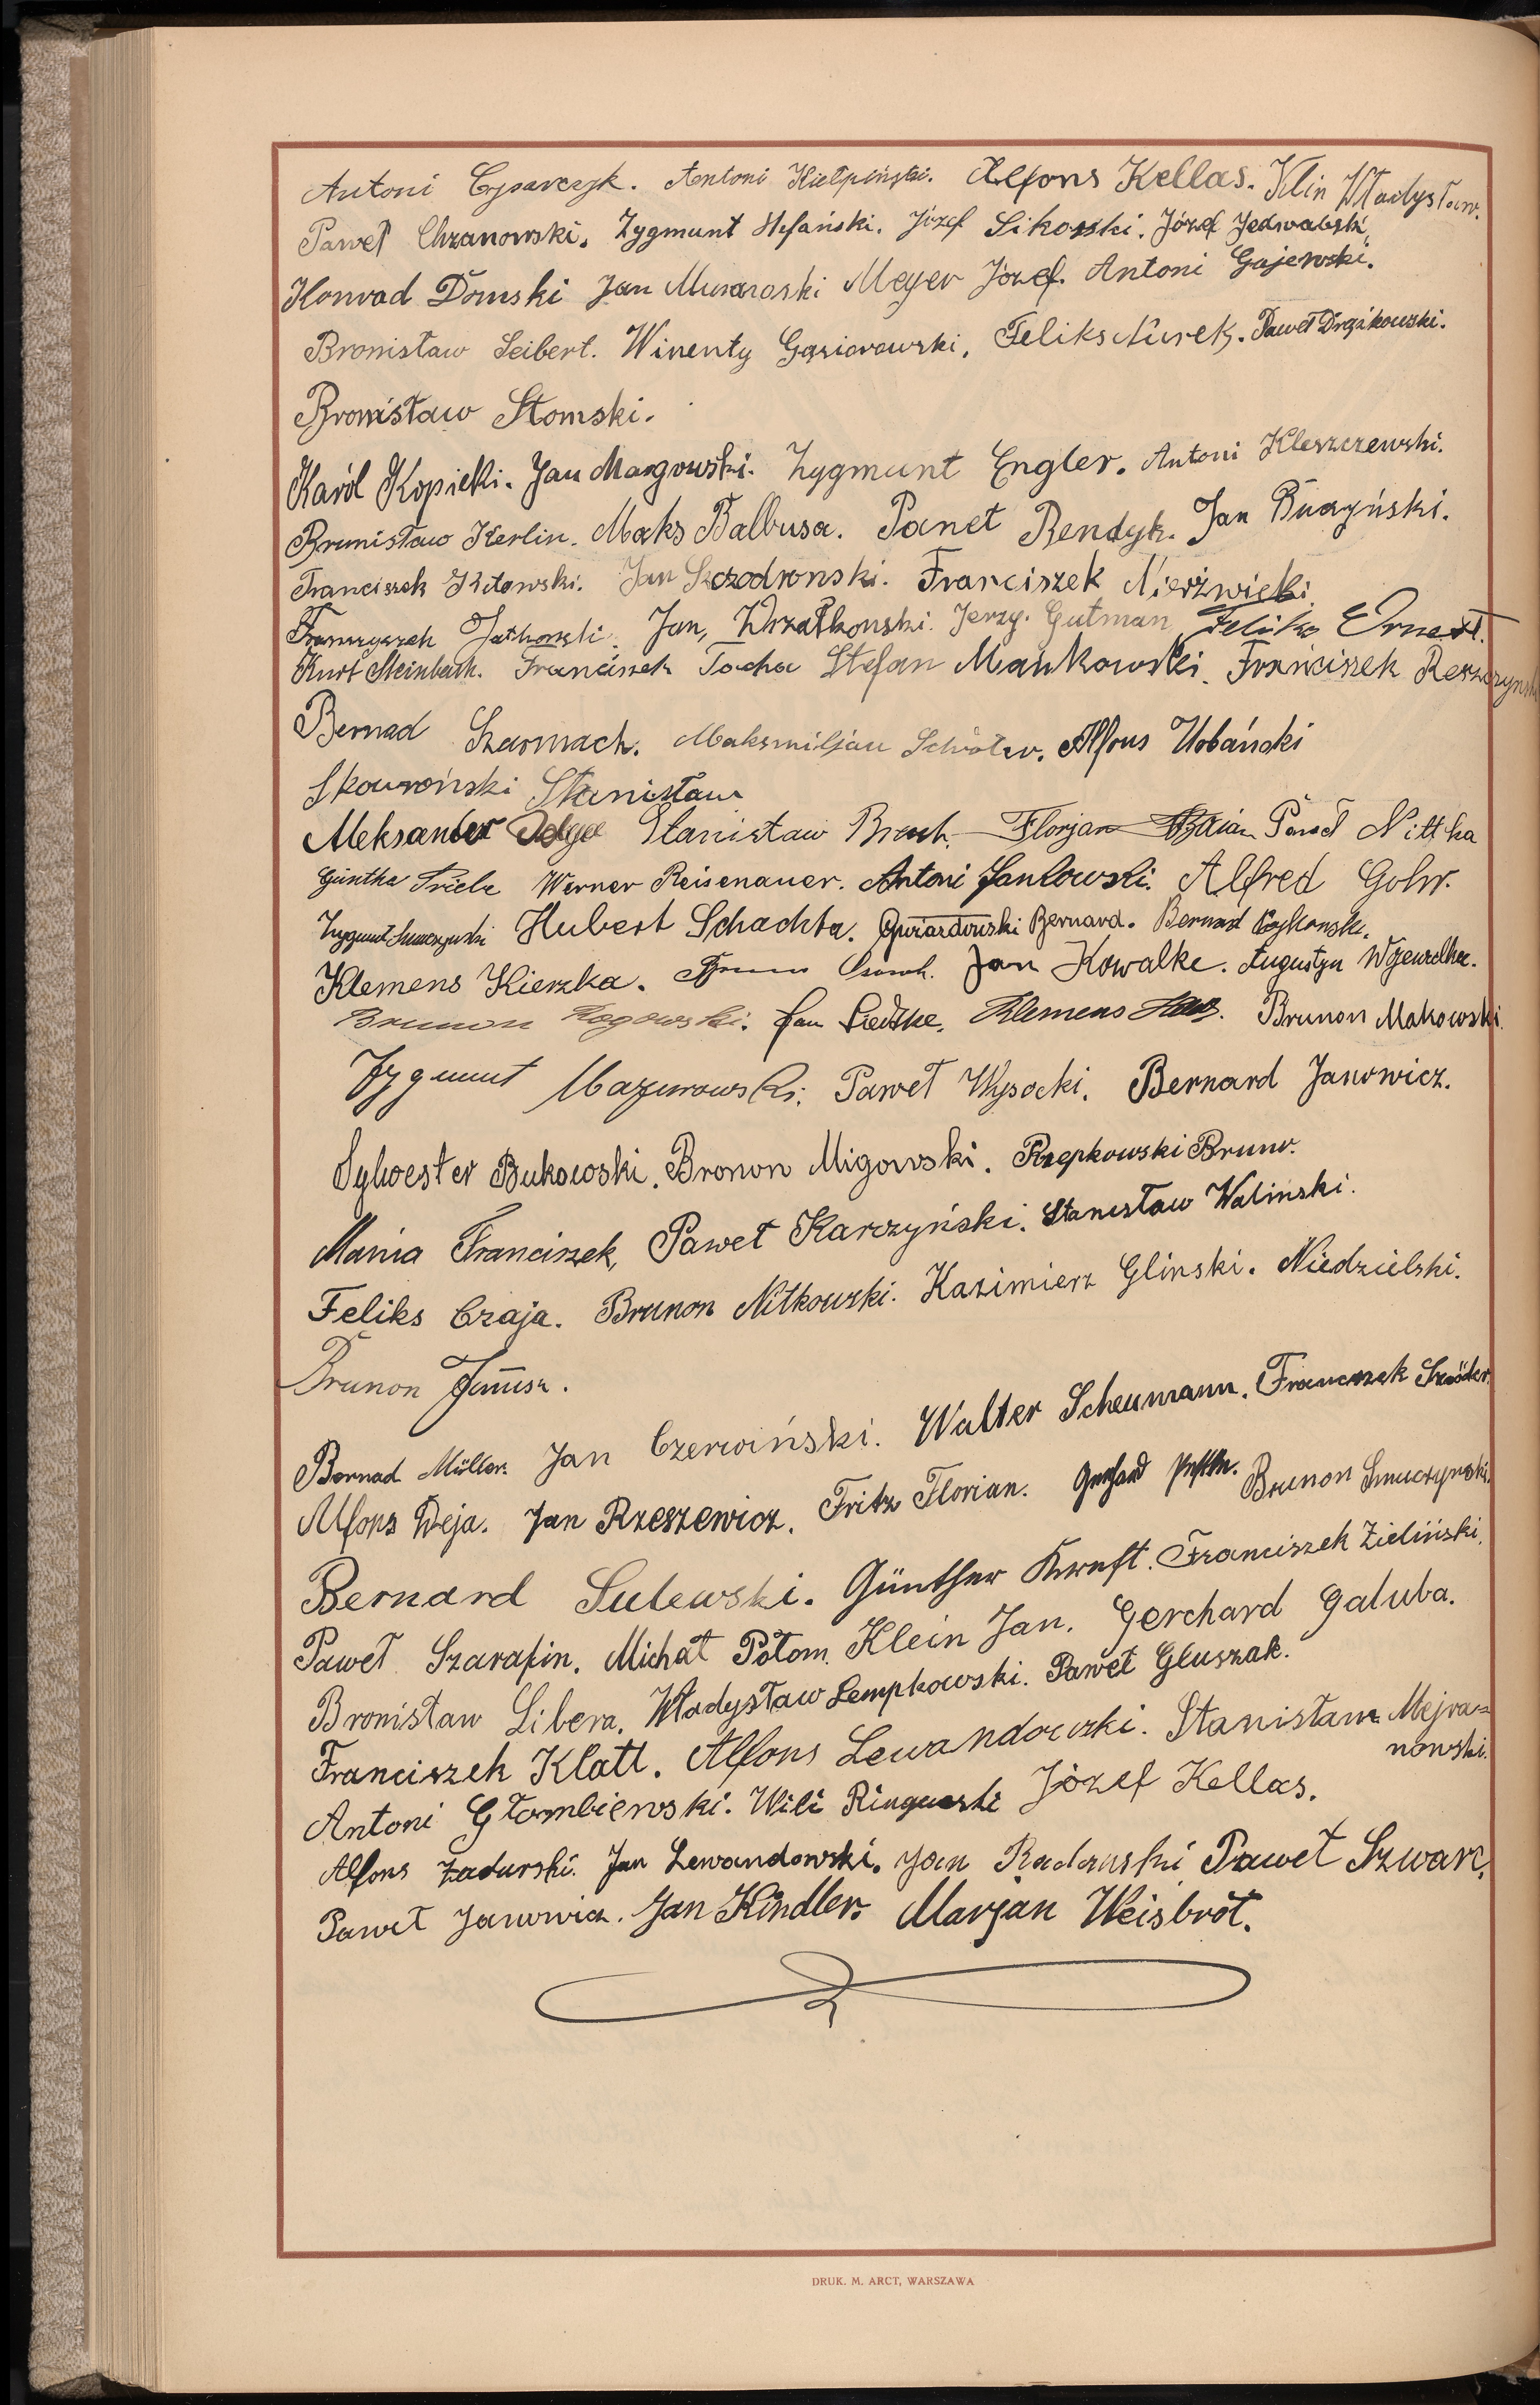 Antoni Cysarczyk. Antoni Kiełpiński. Alfons Kellas. Klin Władysław.
Paweł Chzanowski. Zygmunt Stefański. Józef Sikorski. Józef Jedwabski
Konrad Domski Jan Murawski Meyer Józef. Antoni Gajewski.
Bronisław Seibert. Winenty Gąsiorowski, Feliks Nurek. Paweł Drążkowski.
Bronisław Słomski.
Karól Kopicki. Jan Margowski. Zygmunt Engler. Antoni Kleszczewski.
Brunisław Kerlin. Maks Balbusa. Paweł Bendyk. Jan Buczyński.
Franciszek Kitowski. Jan Szczodronski. Franciszek Nierzwicki
Jan, Wrzałkonski. Jerzy. Gutman Feliks Ernest.
Kurt Steinbach. Franciszek Tocha Stefan Mankowski. Franciszek
Bernad Szarmach. Maksmiljan Schöter. Alfons Urbański
Skowroński Stanisław
Aleksander Stanisław Florjan Paweł Nittka
Güntha Triebe Werner Reisenauer. Antoni Jankowski. Alfred Gohr.
Zygmunt Hubert Schachta. Gwiazdowski Bernard. Bernard
Klemens Kierzka. Jan Kowalke. Augustyn
Brunon Rogowski. Jan Liedtke. Klemens Brunon Makowski.
Zygmunt Mazurowski. Paweł Wysocki. Bernard Janowicz.
Sylwester Bukowski. Bronon Migowski. Rzepkowski Bruno.
Mania Franciszek, Paweł Karczyński. Stanisław Walinski.
Feliks Czaja. Brunon Nitkowski. Kazimierz Glinski. Niedzielski.
Brunon Janusz.
Bernad Müller. Jan Czerwiński. Walter Scheumann. Franciszek Szröder.
Alfons Deja. Jan Rzeszewicz. Fritz Florian. Gerhard Brunon Smuczynski.
Bernard Sulewski. Günther Kraft. Franciszek Zieliński.
Paweł Szarafin. Michał Potom. Klein Jan. Gerchard Galuba.
Bronisław Libera. Władysław Lempkowski. Paweł Gluszak.
Franciszek Klatt. Alfons Lewandowski. Stanisław Mejra=
nowski.
Antoni Głombiewski. Wili Ringwelski Józef Kellas.
Alfons Zadurski. Jan Lewandowski. Jan Radomski Paweł Szwarc.
Paweł Janowicz. Jan Kindler. Marjan Weisbrot.
DRUK. M. ARCT, WARSZAWA